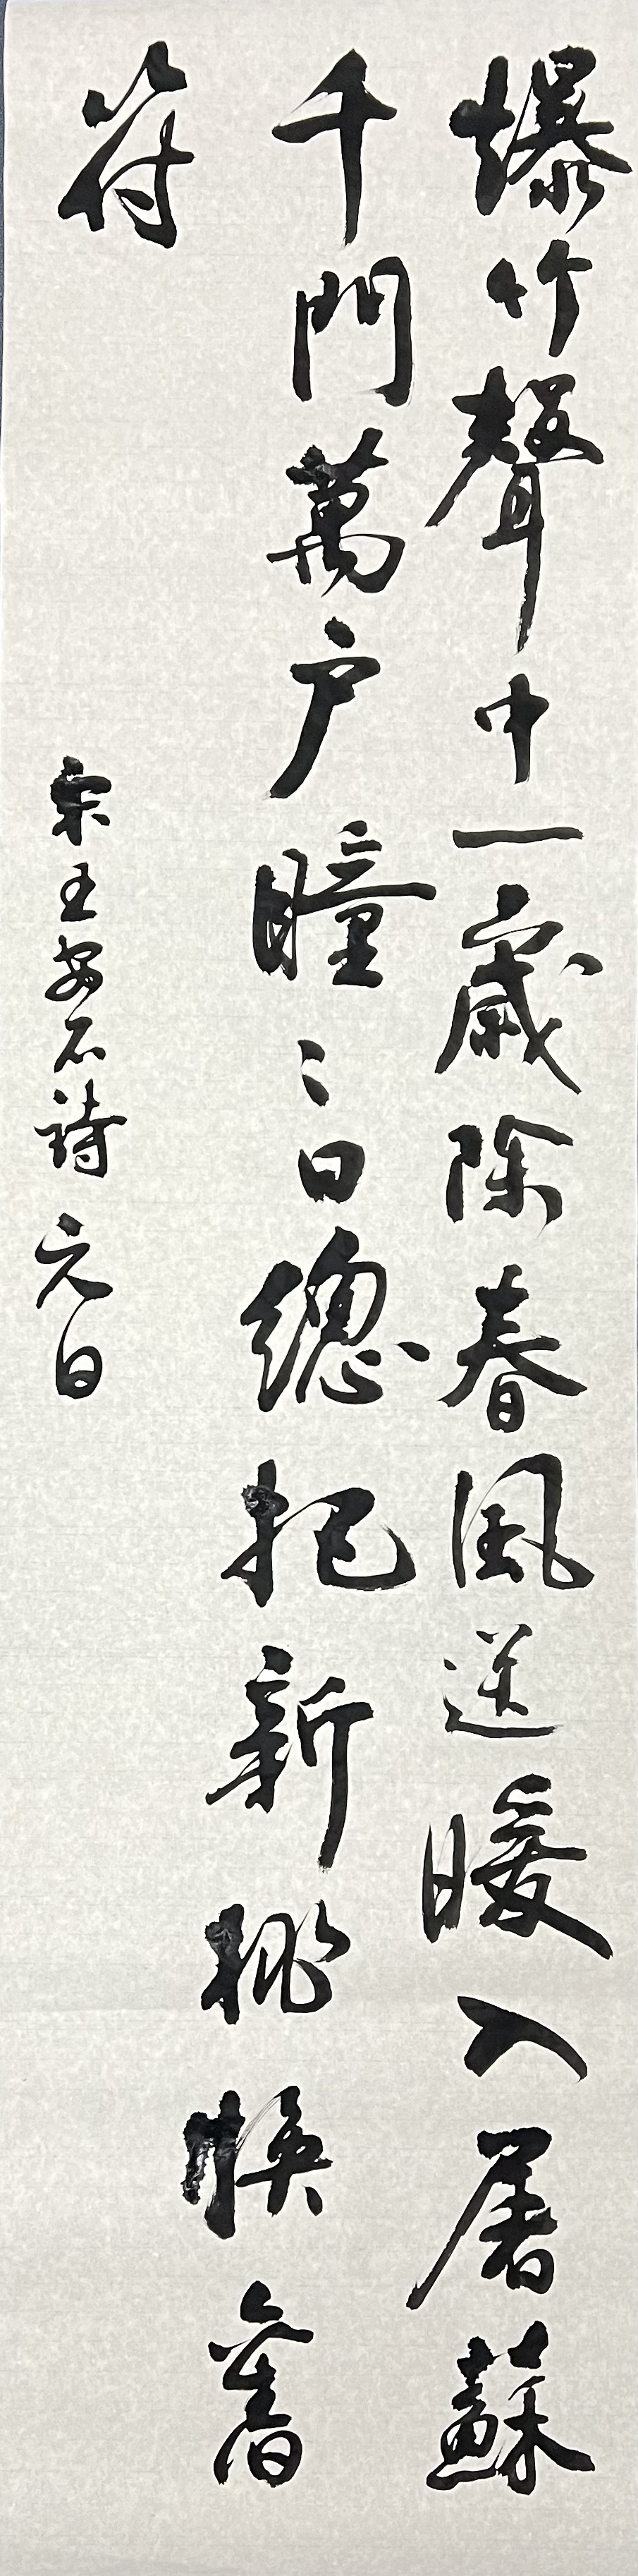 爆竹聲中一歲除春風送暖入屠蘇
千門萬户瞳〻日總把新桃換舊
符
宋王安石詩元日